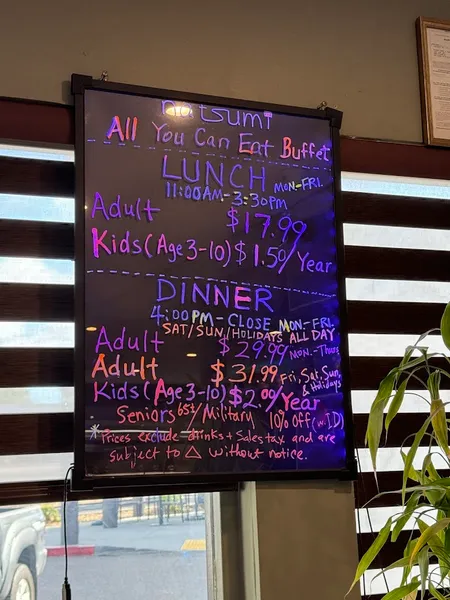 natsumi
All You Can Eat Buffet
LUNCH MON-FRI
11:00AM-3:30PM
Adult $17.99
Kids (Age 3-10) $1.50/Year
DINNER
4:00PM-CLOSE MON-FRI
SAT/SUN/HOLIDAYS ALL DAY
Adult $29.99 MON.-Thurs
Adult $31.99 Fri, Sat, Sun, & Holidays
Kids (Age 3-10) $2.00/Year
Seniors 65+/Military 10% Off (w. ID)
*Prices exclude drinks + Sales tax and are
subject to △ without notice.